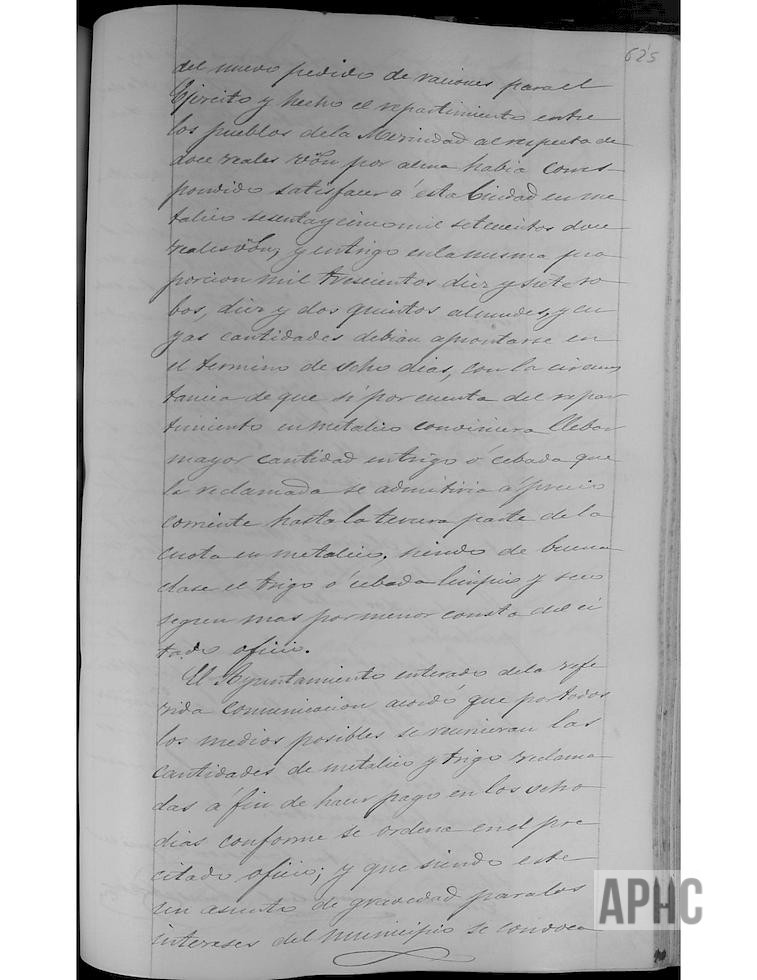 625
del nuevo pedido de raciones para el
Ejército y hecho el repartimiento entre
los pueblos de la Merindad al respecto de
doce reales vón por alma habia corres-
pondido satisfacer á esta Ciudad en me
talico sesenta y cinco mil setecientos doce
reales vón, y en trigo en la misma pro
porcion mil trescientos diez y siete ro
bos, diez y dos quintos almudes, y cu
yas cantidades debian aprontarse en
el termino de ocho dias, con la circuns
tancia de que si por cuenta del repar
timiento en metalico conviniera llebar
mayor cantidad en trigo ó cebada que
la reclamada se admitiria á precio
corriente hasta la tercera parte de la
cuota en metalico, siendo de buena
clase el trigo o cebada limpio y seco
segun mas por menor consta del ci
tado oficio.
El Ayuntamiento enterado de la refe
rida comunicacion acordó que por todos
los medios posibles se reunieran las
cantidades de metalico y trigo reclama
das a fin de hacer pago en los ocho
dias conforme se ordena en el pre
citado oficio; y que siendo este
un asunto de gravedad para los
intereses del municipio se convoca
APHC